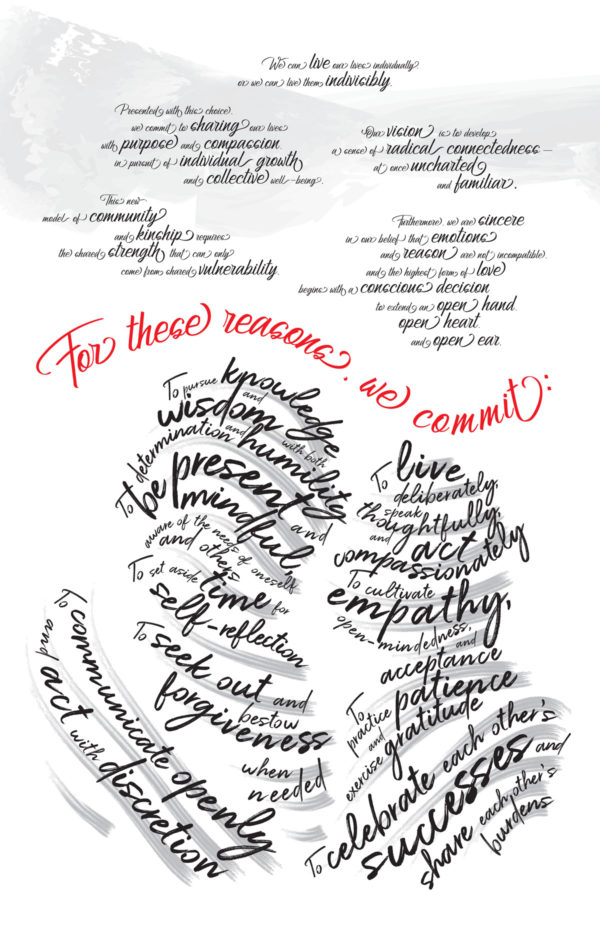 We can live our lives individually
or we can live them indivisibly.
Presented with this choice,
we commit to sharing our lives
with purpose and compassion
in pursuit of individual growth
and collective well-being.
Our vision is to develop
a sense of radical connectedness —
at once uncharted
and familiar.
This new
model of community
and kinship requires
the shared strength that can only
come from shared vulnerability.
Furthermore, we are sincere
in our belief that emotions
and reason are not incompatible,
and the highest form of love
begins with a conscious decision
to extend an open hand,
open heart,
and open ear.
For these reasons, we commit:
To pursue knowledge
and
wisdom
with both
determination and humility
To
be present and
mindful,
aware of the needs of oneself
and others
To set aside time for
self-reflection
To seek out and
bestow
forgiveness
when
needed
To communicate openly
and act with discretion
To live
deliberately,
speak
thoughtfully,
and act
compassionately
To cultivate
empathy,
open-mindedness,
and
acceptance
To
practice patience
and
exercise gratitude
To celebrate each other's
successes and
share each other's
burdens